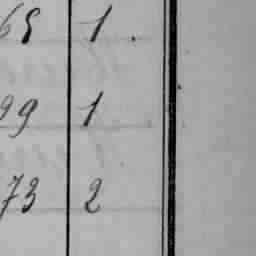 65 1.
99 1
73 2